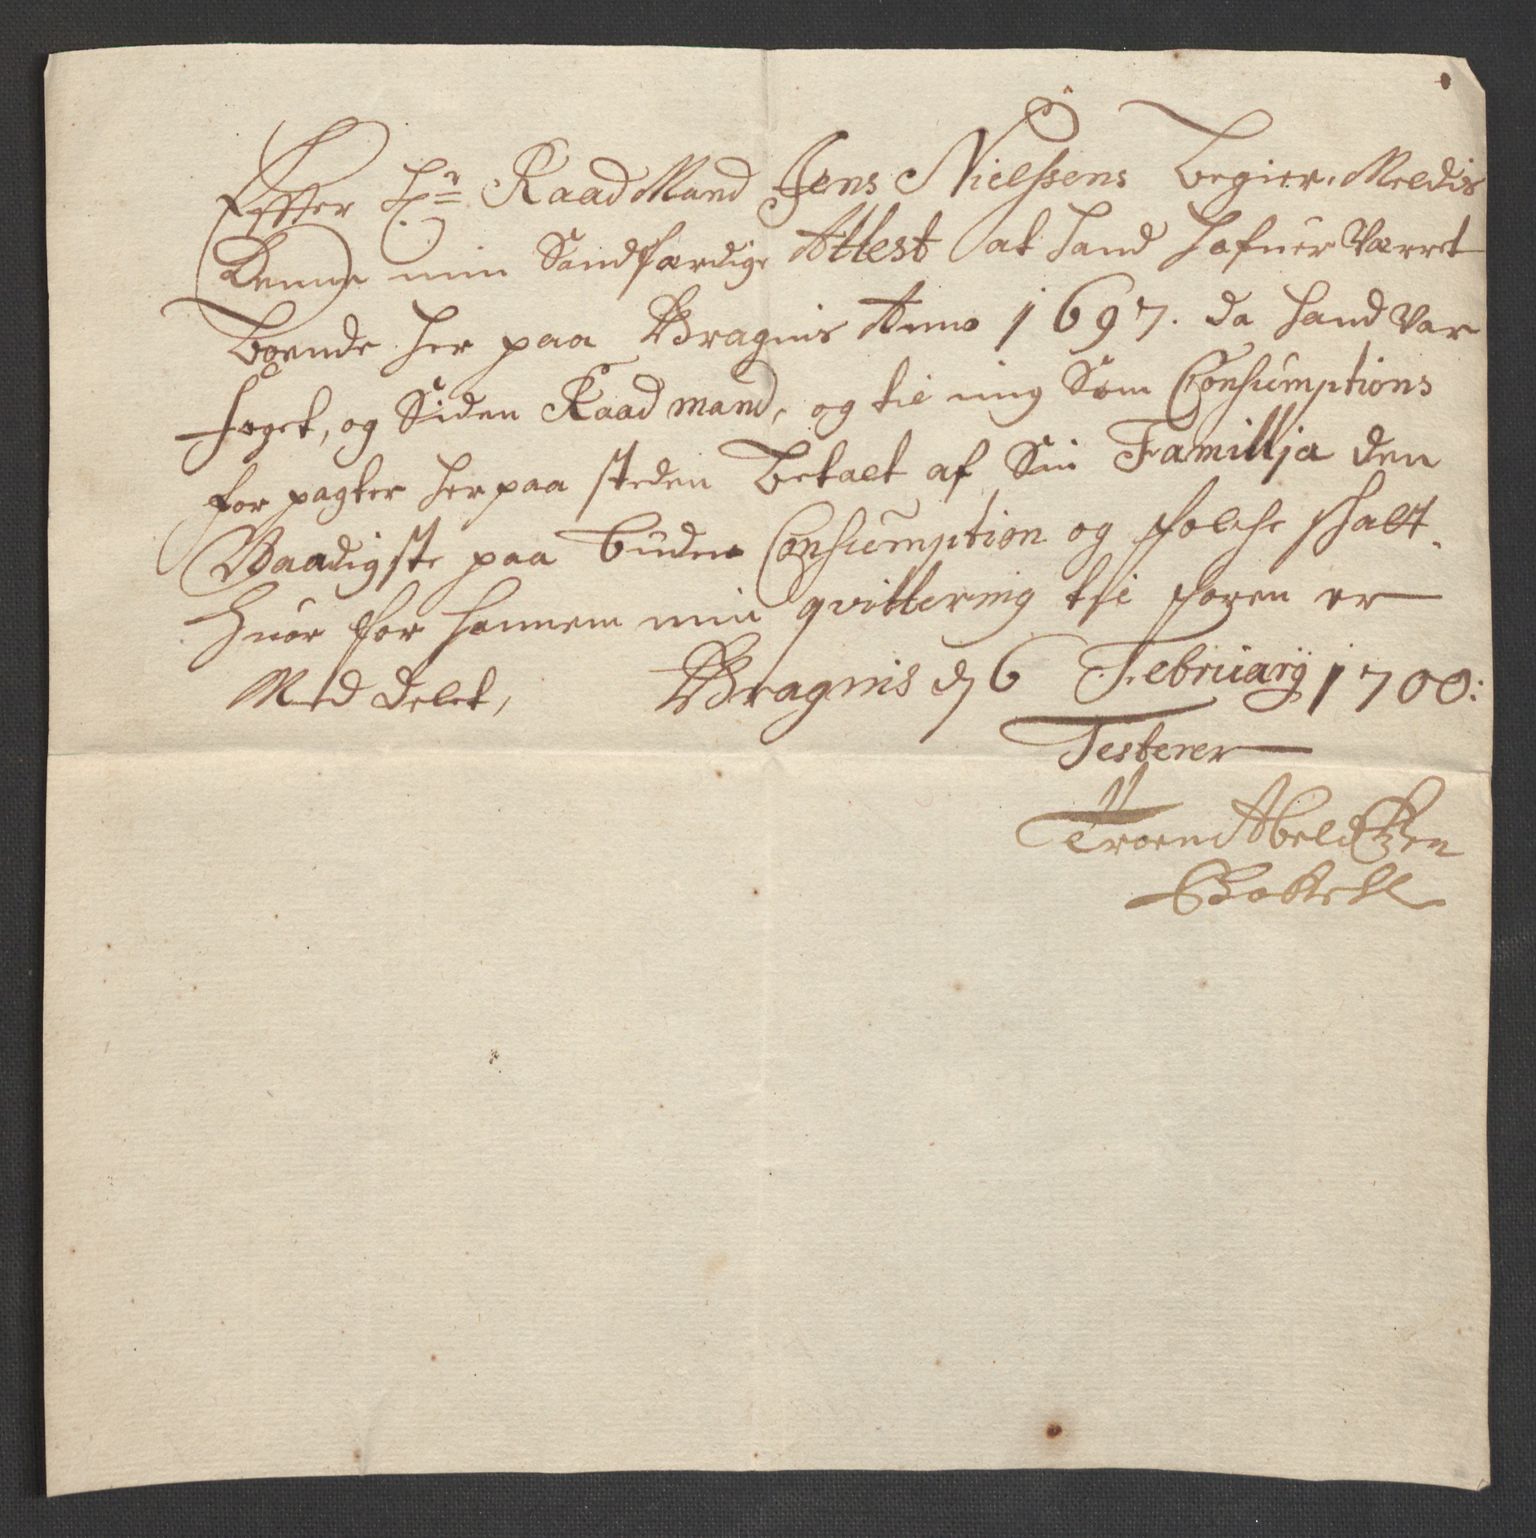 Effter Hr Raadmand Jens Nielsens begier, Meldis
Denne min Sandfærdige Attest at hand hafuer Værret
boende her paa Bragnis Anno 1697. da hand Var
foget, og Siden Raadmand, og til mig Som Consumptions
forpagter her paa steden betalt af Sin Famillja den
Paabudne Consumption og folche skatt.
huor for hannem min qvittering til foren er
Meddelt, Bragnis d 6 February 1700:
Testerer
Troen